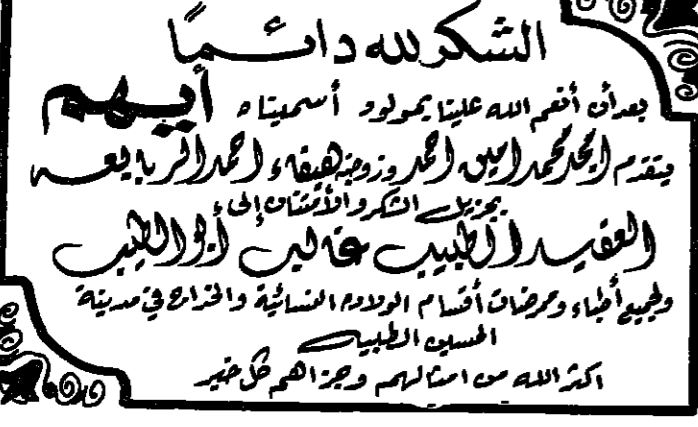 الشكر لله دائمًا
بعد أن أنعم الله علينا بمولود أسميناه أيهم
يتقدم امجد محمد امين احمد وزوجته هيفاء احمد الربايعه
بجزيل الشكر والأمتنان إلى
العقيد الطبيب غالب أبو الطيب
ولجميع أطباء وممرضات أقسام الولادة النسائية والخداج في مدينة
الحسين الطبية
اكثر الله من امثالهم وجزاهم كل خير